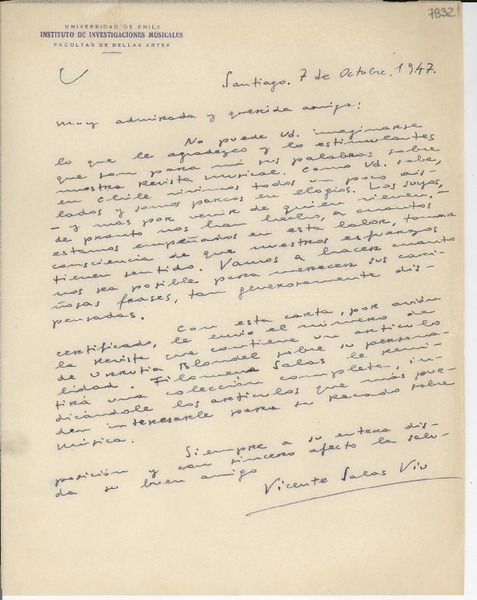 7832
UNIVERSIDAD DE CHILE
INSTITUTO DE INVESTIGACIONES MUSICALES
FACULTAS DE BELLAS ARTES
Santiago. 7 de Octubre. 1947.
Muy admirada y querida amiga:
No puede Ud. imaginarse
lo que le agradezco y lo estimulantes
que son para mí sus palabras sobre
nuestra Revista Musical. Como Ud. sabe,
en Chile vivimos todos un poco ais-
lados y somos parcos en elogios. Los suyos,
- y más por venir de quien vienen, -
de pronto nos han hecho, a cuantos
estamos empeñados en esta labor, tomar
consciencia de que nuestros esfuerzos
tienen sentido. Vamos a hacer cuanto
nos sea posible para merecer sus cari-
ñosas frases, tan generosamente dis-
pensadas.
Con esta carta, por avión
certificado, le envío el número de
la revista que contiene un artículo
de Urrutia Blondel sobre su persona-
lidad. Filomena Salas le remi-
tirá una colección completa, in-
dicándole los artículos que más pue-
den interesarle para su Recado sobre
Música.
Siempre a su entera dis-
posición y con sincero afecto la salu-
da su buen amigo
Vicente Salas Viu